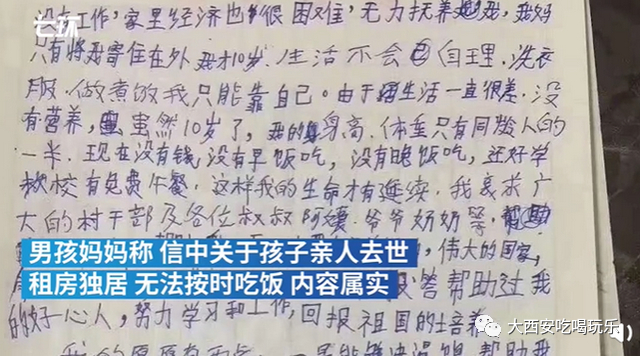 七环
没有工作,家里经济也很困难,无力扶养我,我妈
只有将我寄住在外 我才10岁.生活不会自理.洗衣
服.做煮饭我只能靠自己.由于生活一直很差.没
有营养,虽然10岁了,我的身高.体重只有同龄人的
一半.现在没有钱,没有早饭吃,没有晚饭吃,还好学
校有免费午餐.这样我的生命才有延续.我衷求广
大的村干部及各位叔叔 阿姨.爷爷奶奶等,
男孩妈妈称 信中关于孩子亲人去世
伟大的国家,
租房独居 无法按时吃饭 内容属实
答帮助过我
的好心人,努力学习和工作,回报祖国的培养
大西安吃喝玩乐